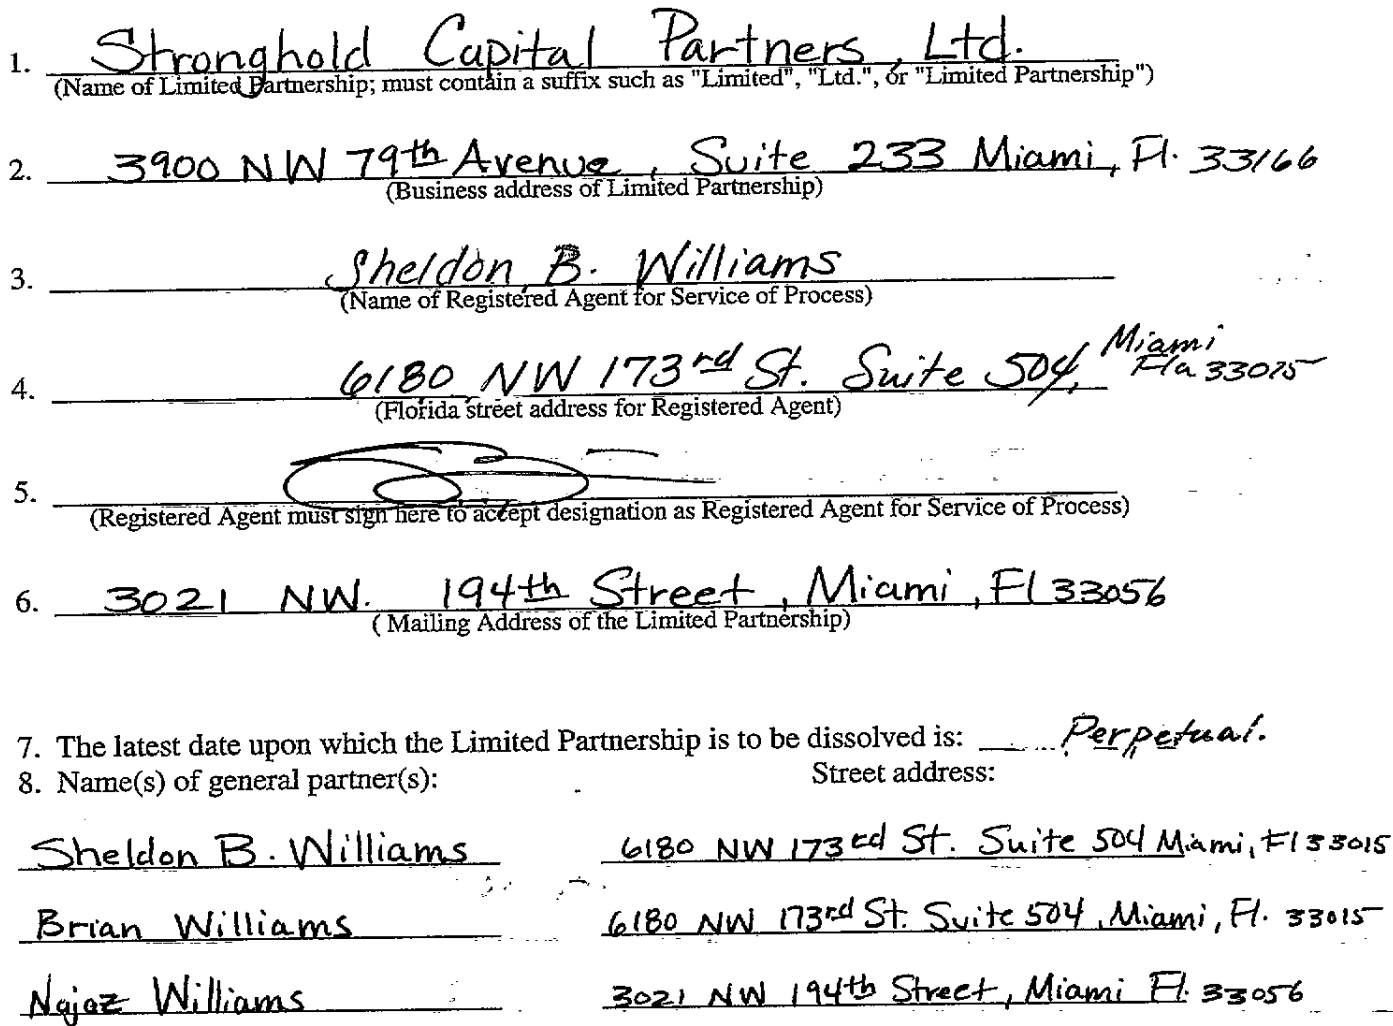 1. Stronghold Capital Partners, Ltd.
(Name of Limited Partnership; must contain a suffix such as "Limited", "Ltd.", or "Limited Partnership")
2. 3900 NW 79th Avenue, Suite 233 Miami, Fl. 33166
(Business address of Limited Partnership)
3. Sheldon B. Williams
(Name of Registered Agent for Service of Process)
4. 6180 NW 173rd St. Suite 504, Miami Fla 33015
(Florida street address for Registered Agent)
5.
(Registered Agent must sign here to accept designation as Registered Agent for Service of Process)
6. 3021 NW. 194th Street, Miami, Fl 33056
( Mailing Address of the Limited Partnership)
7. The latest date upon which the Limited Partnership is to be dissolved is: Perpetual.
8. Name(s) of general partner(s): Street address:
Sheldon B. Williams 6180 NW 173rd St. Suite 504 Miami, Fl 33015
Brian Williams 6180 NW 173rd St. Suite 504, Miami, Fl. 33015
Najaz Williams 3021 NW 194th Street, Miami Fl. 33056